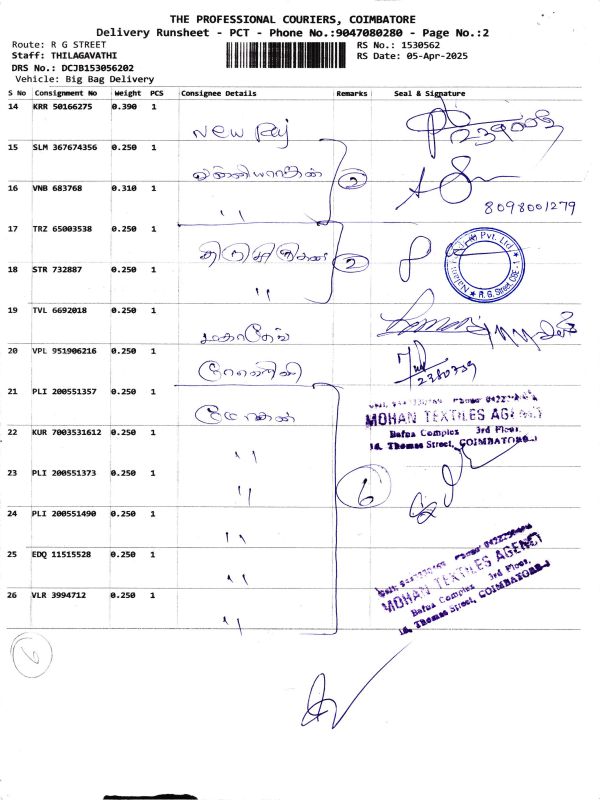 THE PROFESSIONAL COURIERS, COIMBATORE
Delivery Runsheet - PCT - Phone No.:9047080280 - Page No.:2
Route: R G STREET
RS No.: 1530562
Staff: THILAGAVATHI
RS Date: 05-Apr-2025
DRS No.: DCJB153056202
Vehicle: Big Bag Delivery
S No Consignment No Weight PCS Consignee Details Remarks Seal & Signature
14 KRR 50166275 0.390 1
New Raj
15 SLM 367674356 0.250 1
2
16 VNB 683768 0.310 1
" 8098001279
17 TRZ 65003538 0.250 1
2
18 STR 732887 0.250 1
"
R.G. Street, CBE-1
19 TVL 6692018 0.250 1
மகாதேவ்
20 VPL 951906216 0.250 1
21 PLI 200551357 0.250 1
மோகன்
MOHAN TEXTILES AGENCY
Bafna Complex 3rd Floor,
16, Thomas Street, COIMBATORE-1
22 KUR 7003531612 0.250 1
"
23 PLI 200551373 0.250 1
" 6
24 PLI 200551490 0.250 1
"
25 EDQ 11515528 0.250 1
"
MOHAN TEXTILES AGENCY
Bafna Complex 3rd Floor,
16, Thomas Street, COIMBATORE-1
26 VLR 3994712 0.250 1
"